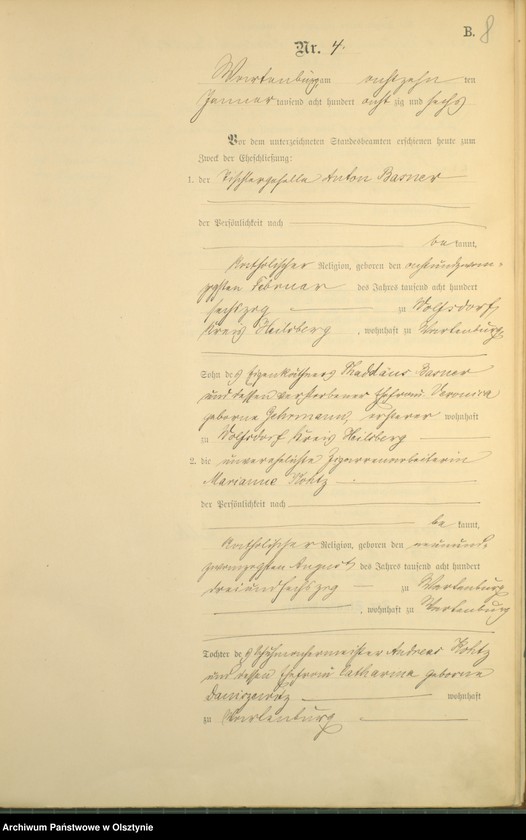 B. 8
Nr. 4.
Wartenburg am achtzehn ten
Januar tausend acht hundert acht zig und sechs
Vor dem unterzeichneten Standesbeamten erschienen heute zum
Zweck der Eheschließung:
1. der Tischlergeselle Anton Basner
der Persönlichkeit nach
be kannt,
katholischer Religion, geboren den achtundzwan-
zigsten Februar des Jahres tausend acht hundert
sechszig zu Wolfsdorf
Kreis Heilsberg, wohnhaft zu Wartenburg
Sohn des Eigenkäthners Thaddäus Basner
und dessen verstorbener Ehefrau Veronica
geborne, ersterer wohnhaft
zu Wolfsdorf Kreis Heilsberg
2. die unverehelichte Zigarrenarbeiterin
Marianne
der Persönlichkeit nach
be kannt,
katholischer Religion, geboren den neunund-
zwanzigsten August des Jahres tausend acht hundert
dreiundsechszig zu Wartenburg
, wohnhaft zu Wartenburg
Tochter des Schuhmachermeister Andreas
und dessen Ehefrau Catharina geborne
wohnhaft
zu Wartenburg
Archiwum Państwowe w Olsztynie